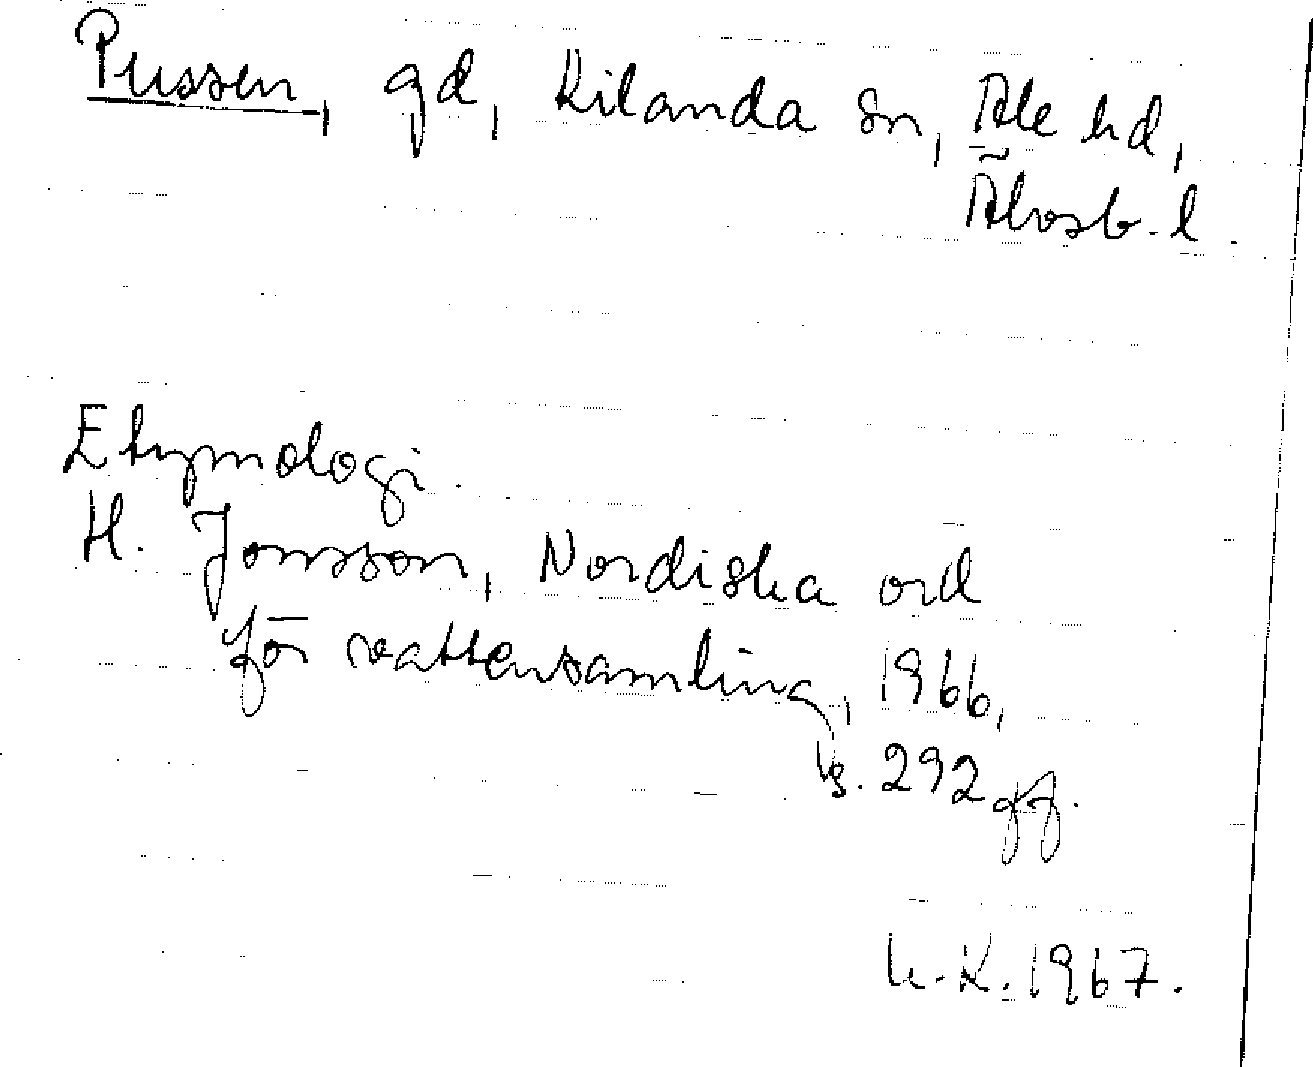 Pussen, gd, Kilanda sn, Ale hd,
Älvsb. l.
Etymologi.
H. Jonsson, Nordiska ord
för vattensamling, 1966,
s. 292 ff.
U.K. 1967.